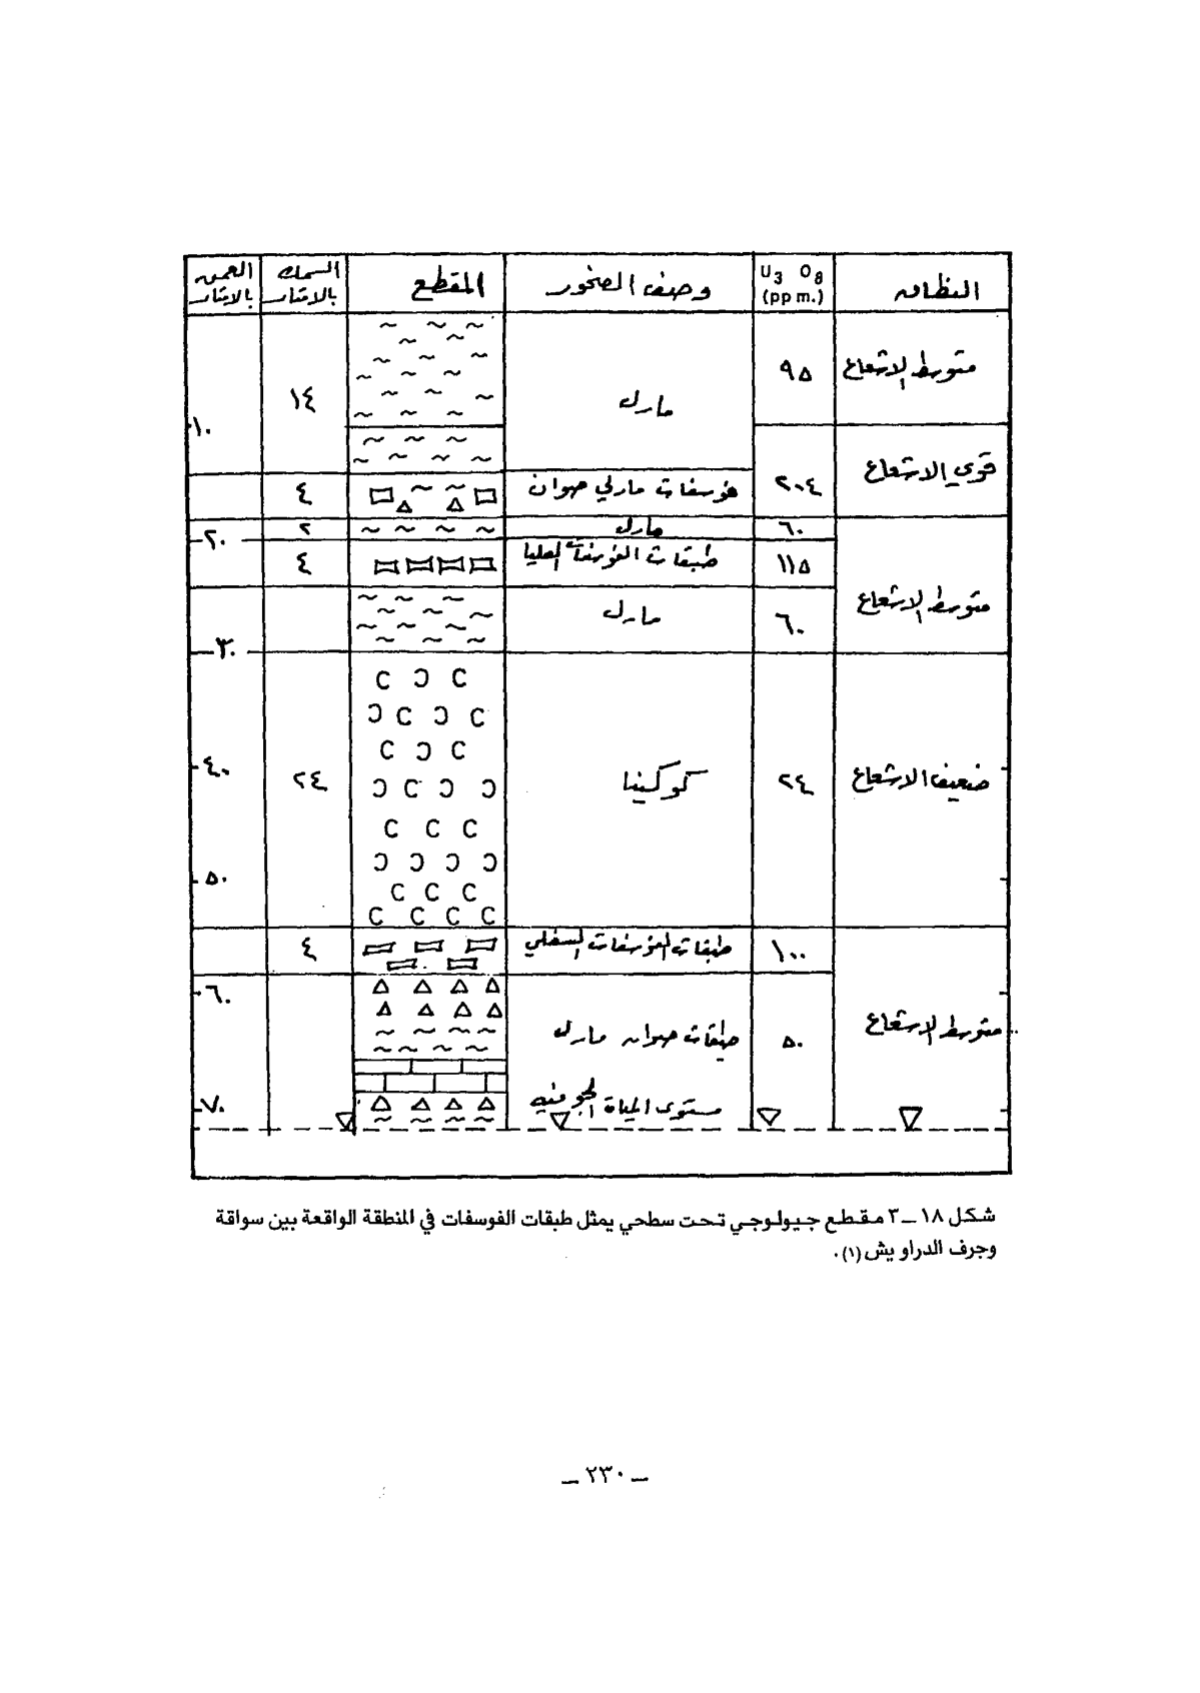 النطاق U3 O8 (ppm.) وصف الصخور المقطع السمك بالامتار العمق بالامتار
متوسط الاشعاع ٩٥ مارل ١٤ ١٠
قوي الاشعاع ٢٠٤ فوسفات مارلي صوان ٤
٦٠ مارل ٢ ٢٠
متوسط الاشعاع ١١٥ طبقات الفوسفات العليا ٤
٦٠ مارل ٣٠
ضعيف الاشعاع ٢٤ كوكينا ٢٤ ٤٠
٥٠
١٠٠ طبقات الفوسفات السفلي ٤
٦٠
متوسط الاشعاع ٥٠ طبقات صوان مارل
مستوى المياة الجوفيه ٧٠
شكل ١٨ ــ ٣ مقطع جيولوجي تحت سطحي يمثل طبقات الفوسفات في المنطقة الواقعة بين سواقة
وجرف الدراويش (١).
ــ ٢٣٠ ــ